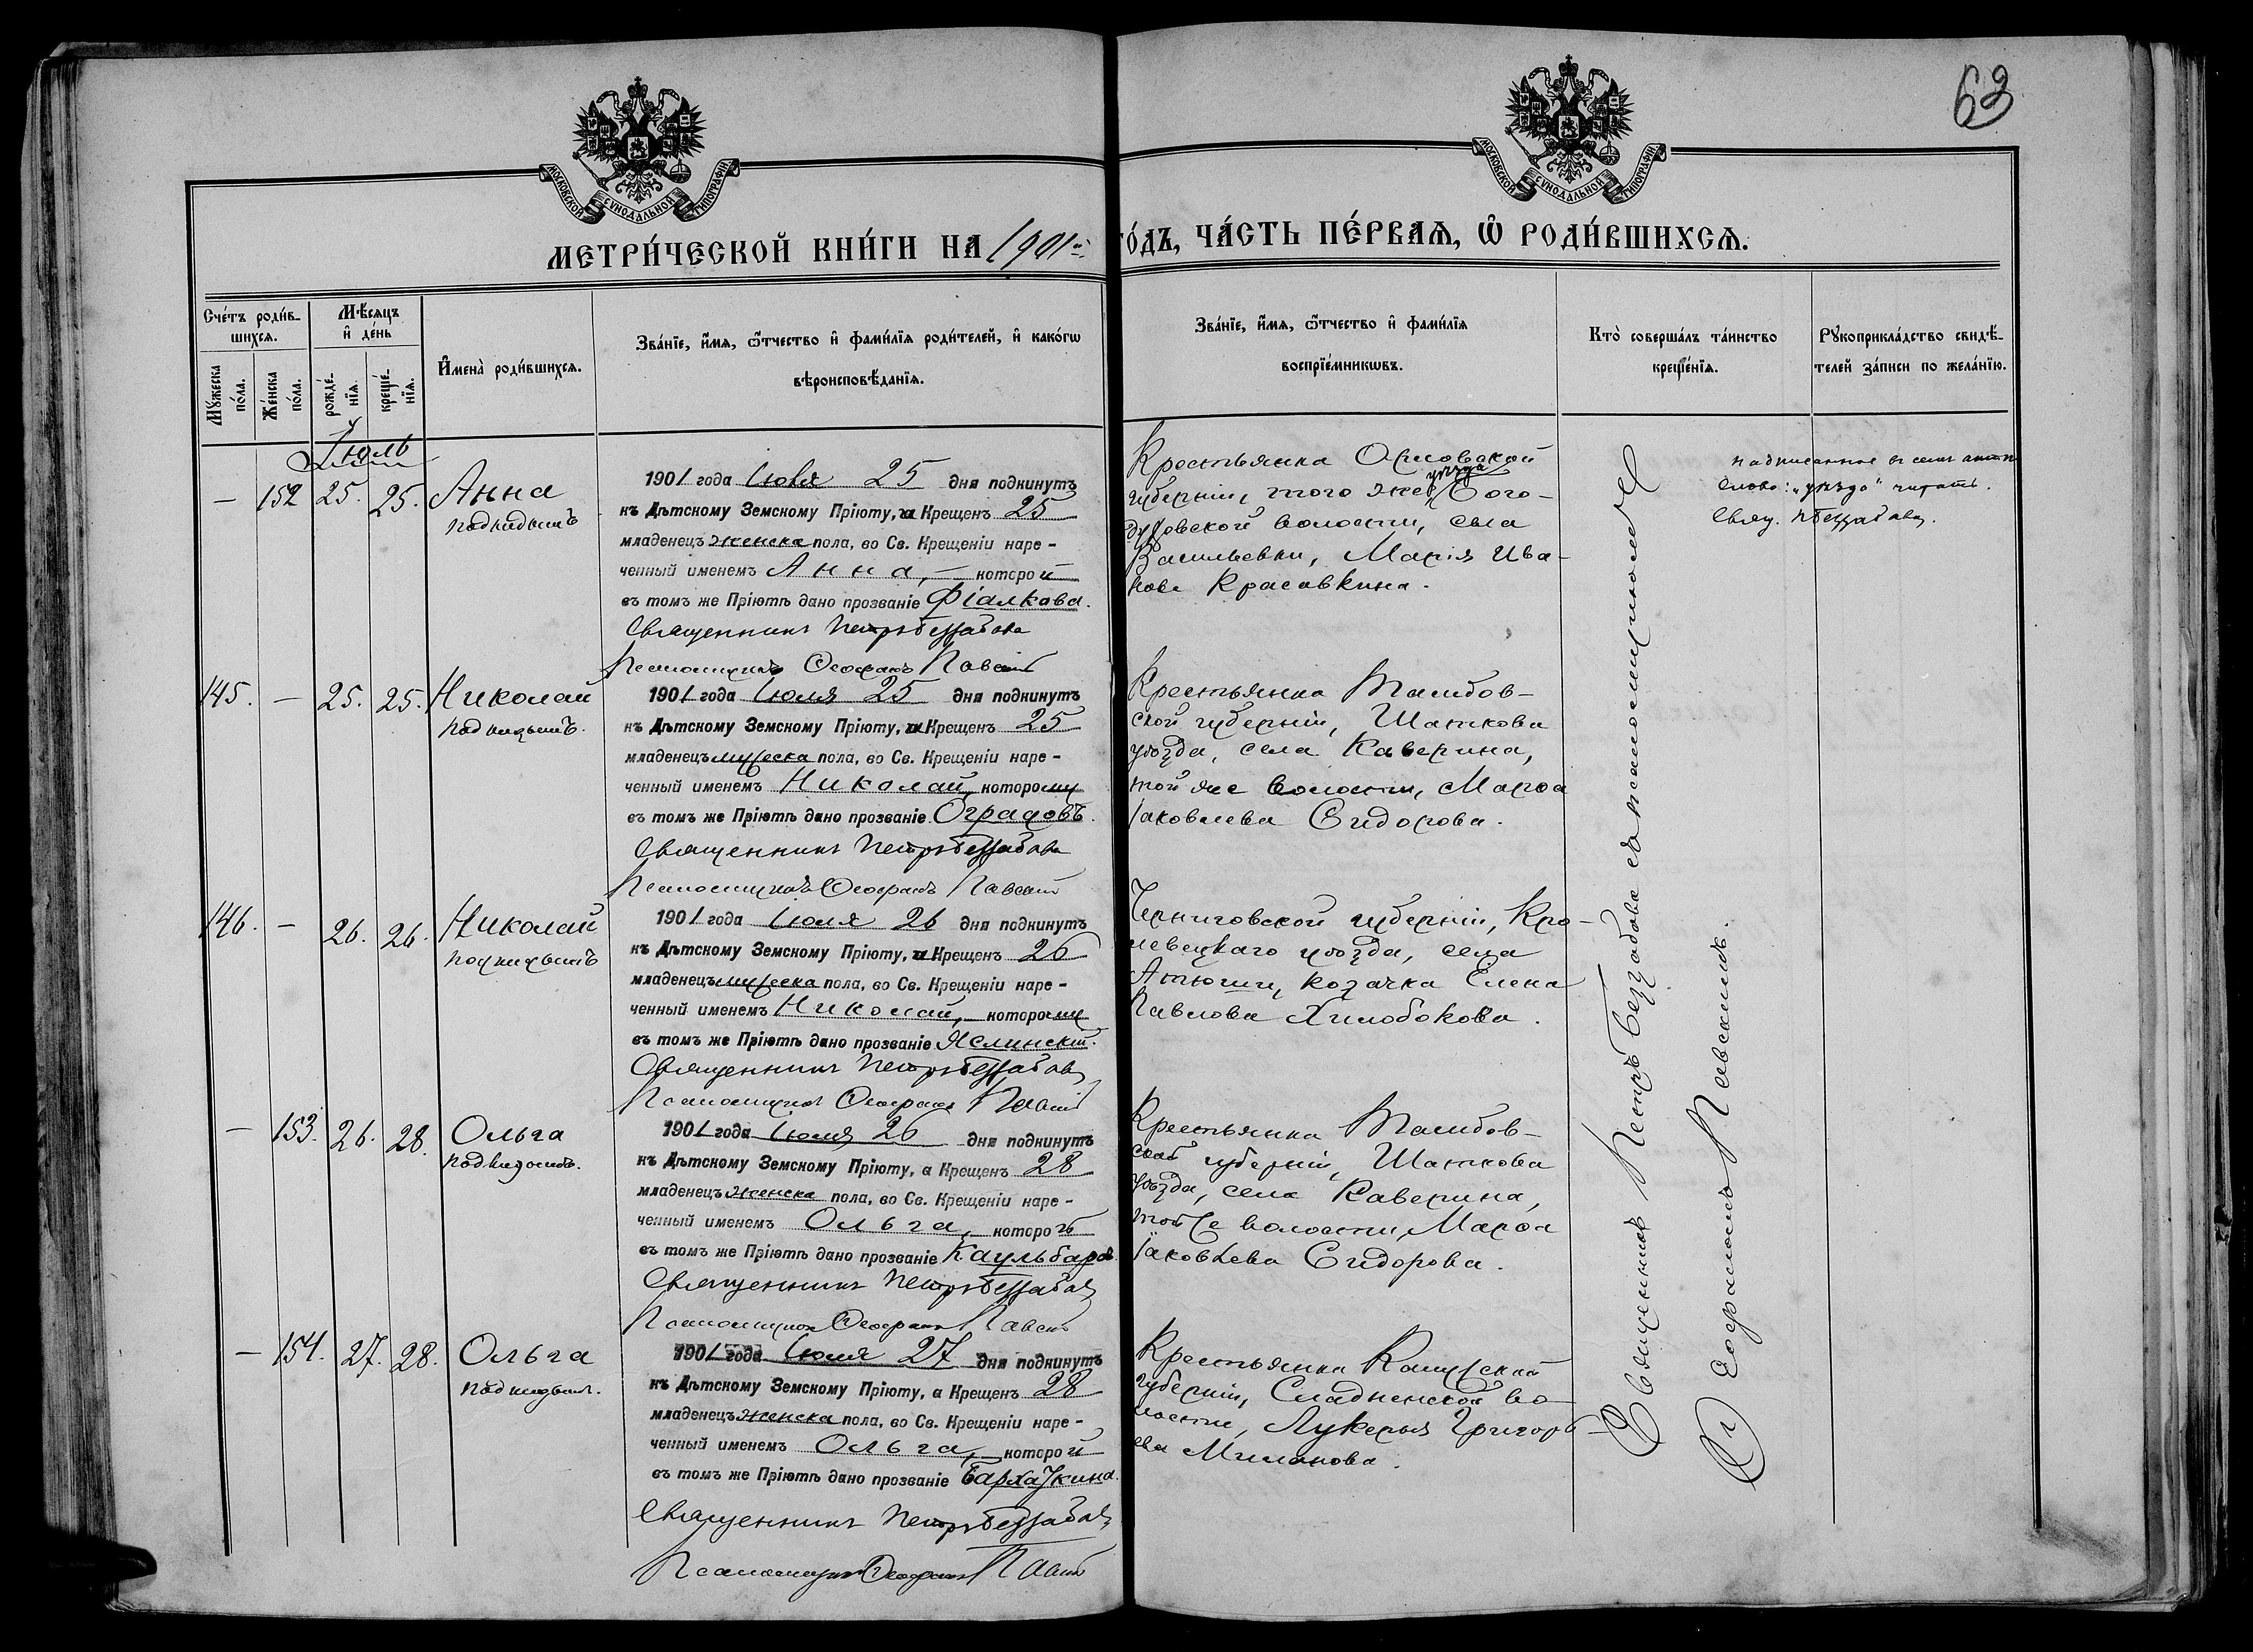 63
МОСКОВСКОЙ СѴНОДАЛЬНОЙ ТИПОГРАФІИ
МОСКОВСКОЙ СѴНОДАЛЬНОЙ ТИПОГРАФІИ
МЕТРИ́ЧЕСКОЙ КНИ́ГИ НА 1901
ГО́ДЪ, ЧА́СТЬ ПЕ́РВАѦ, Ѡ҆ РОДИ́ВШИХСѦ.
Сче́тъ роди́в-
шихсѧ.
Мꙋ́жеска
по́ла.
Же́нска
по́ла.
Мѣ́сѧцъ
и҆ де́нь
рожде́-
нїѧ.
креще́-
нїѧ.
И҆мена̀ роди́вшихсѧ.
Зва́нїе, и҆́мѧ, ѻ҆́тчество и҆ фами́лїѧ роди́телей, и҆ како́гѡ
вѣроисповѣ́данїѧ.
Зва́нїе, и҆́мѧ, ѻ҆́тчество и҆ фами́лїѧ
воспрїе́мникѡвъ.
Кто̀ соверша́лъ та́инство
креще́нїѧ.
Рꙋкоприкла́дство свидѣ́-
телей за́писи по жела́нїю.
Іюль
— 152 25. 25. Анна
подкидышъ
1901 года Іюля 25 дня подкинутъ
къ Дѣтскому Земскому Пріюту, и Крещенъ 25
младенецъ женска пола, во Св. Крещеніи наре-
ченный именемъ Анна, — которой
въ томъ же Пріютѣ дано прозваніе Фіалкова.
Священникъ Петръ Беззабава
Псаломщикъ Ѳеофанъ Павскій
Крестьянка Орловской
губерніи, того же уѣзда Бого-
духовской волости, села
Васильевки, Марія Ива-
нова Красавкина.
надписанное въ семъ актѣ
слово: „уѣзда" читать.
Свящ. П Беззабава.
145. — 25. 25. Николай
подкидышъ.
1901 года Іюля 25 дня подкинутъ
къ Дѣтскому Земскому Пріюту, и Крещенъ 25
младенецъ мужеска пола, во Св. Крещеніи наре-
ченный именемъ Николай, которому
въ томъ же Пріютѣ дано прозваніе Оградовъ.
Священникъ Петръ Беззабава
Псаломщикъ Ѳеофанъ Павскій
Крестьянка Тамбов-
ской губерніи, Шацкова
уѣзда, села Каверина,
той же волости, Марѳа
Іаковлева Сидорова.
146. — 26. 26. Николай
подкидышъ
1901 года Іюля 26 дня подкинутъ
къ Дѣтскому Земскому Пріюту, и Крещенъ 26
младенецъ мужеска пола, во Св. Крещеніи наре-
ченный именемъ Николай, — которому
въ томъ же Пріютѣ дано прозваніе Яслинскій.
Священникъ Петръ Беззабава
Псаломщикъ Ѳеофанъ Павскій
Черниговской губерніи, Кро-
левецкаго уѣзда, села
Атюши, козачка Елена
Павлова Хилобокова.
— 153. 26. 28. Ольга
подкидышъ.
1901 года Іюля 26 дня подкинутъ
къ Дѣтскому Земскому Пріюту, а Крещенъ 28
младенецъ женска пола, во Св. Крещеніи наре-
ченный именемъ Ольга, которой
въ томъ же Пріютѣ дано прозваніе Каульбарсъ
Священникъ Петръ Беззабава
Псаломщикъ Ѳеофанъ Павскій
Крестьянка Тамбов-
ской губерніи, Шацкова
уѣзда, села Каверина,
той же волости, Марѳа
Іаковлева Сидорова.
— 154. 27. 28. Ольга
подкидышъ.
1901 года Іюля 27 дня подкинутъ
къ Дѣтскому Земскому Пріюту, а Крещенъ 28
младенецъ женска пола, во Св. Крещеніи наре-
ченный именемъ Ольга, — которой
въ томъ же Пріютѣ дано прозваніе Бархаткина.
Священникъ Петръ Беззабава
Псаломщикъ Ѳеофанъ Павскій
Крестьянка Калужской
губерніи, во-
лости, Лукерья Григорь-
ева Миланова.
Священникъ Петръ Беззабава съ псаломщикомъ
Ѳеофаномъ Павскимъ.